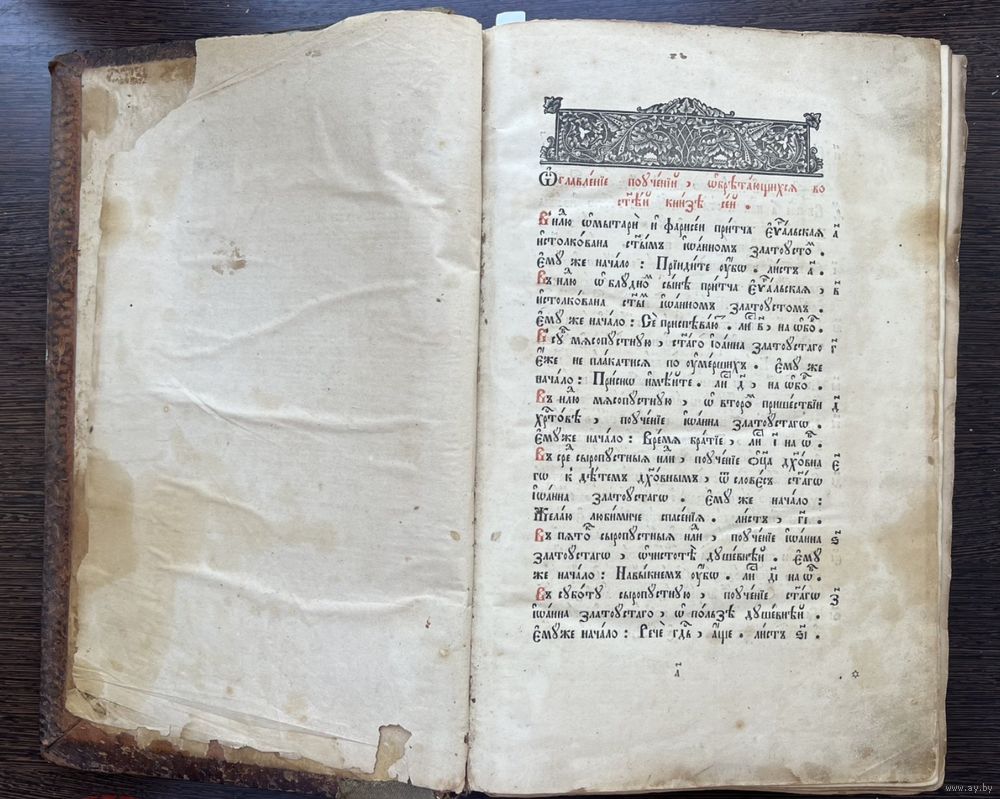 Ѡглавленїе поученїй, ѡбрѣтающихся во
ст҃ѣй книзѣ сей.
В нл҃ю ѡмытари и фарисеи притча єѵⷢ҇льская а҃
истолкована ст҃ымъ іѡанномъ златоустоⷨ.
ємуже начало: Прїидите оубѡ. листъ а҃.
Въ нл҃ю ѡ блудноⷨ сынѣ притча єѵⷢ҇льская, в҃
истолкована ст҃ыⷨ іѡанномъ златоустомъ.
ємуже начало: Се приспѣваⷮ. лиⷭ҇ в҃, на ѡбоⷬ.
В суⷠ мясопустную, ст҃аго іѡанна златоустаго г҃
єже не плакатися по оумершихъ. ємуже
начало: Приснѡ имѣйте. лиⷭ҇ д҃, на ѡбоⷬ.
Въ нл҃ю мясопустную, ѡ второⷨ пришествїи д҃
хрⷭ҇товѣ, поученїе іѡанна златоустагѡ.
ємуже начало: Время братїе, лиⷭ҇ і҃ на ѡⷠ.
Въ среⷣ сыропустныя нл҃и, поученїе ѻц҃а дх҃овна є҃
гѡ к дѣтемъ дх҃овнымъ, ѿ словесъ ст҃агѡ
іѡанна златоустагѡ. ємуже начало:
Желаю любимиче спасенїя. листъ, г҃і.
Въ пятоⷦ сыропустныя нл҃и, поученїе іѡанна ѕ҃
златоустагѡ, ѡчистотѣ душевнѣй. єму
же начало: Навыкнемъ оубѡ. лиⷭ҇ д҃і на ѡⷠ.
Въ суботу сыропустную, поученїе ст҃агѡ з҃
іѡанна златоустаго, ѡ пользѣ душевнѣй.
ємуже начало: Рече гдⷭ҇ь, аще. листъ ѕ҃і.
а҃
www.ay.by